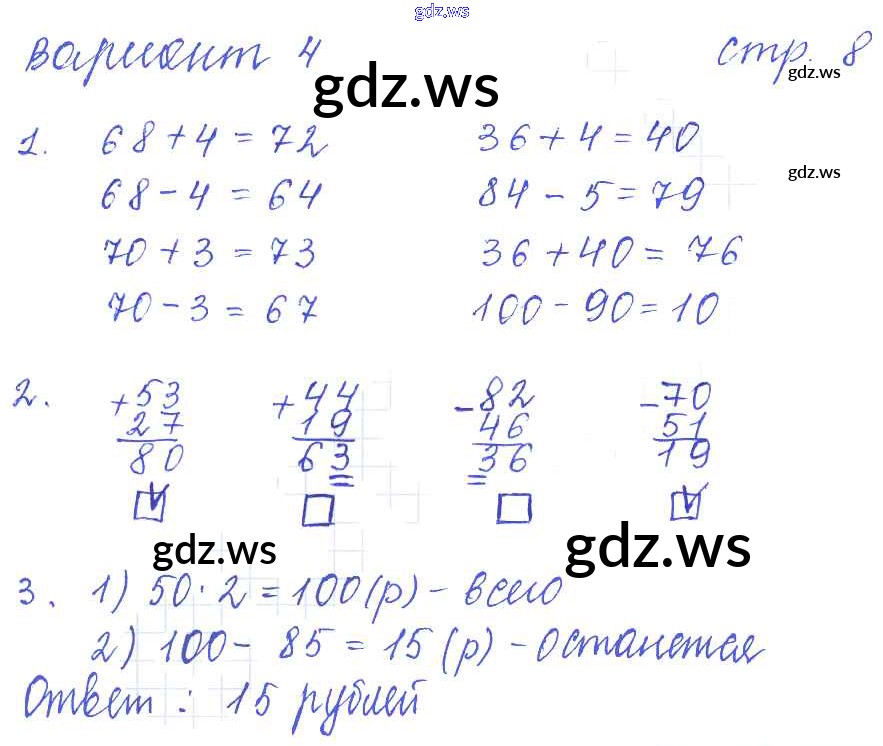 gdz.ws
Вариант 4 стр. 8
gdz.ws
gdz.ws
1. 68 + 4 = 72 36 + 4 = 40
68 - 4 = 64 84 - 5 = 79
gdz.ws
70 + 3 = 73 36 + 40 = 76
70 - 3 = 67 100 - 90 = 10
2. + 53 + 44 - 82 - 70
27 19 46 51
80 63 36 19
gdz.ws
gdz.ws
3. 1) 50 · 2 = 100 (р) - всего
2) 100 - 85 = 15 (р) - останется
Ответ : 15 рублей